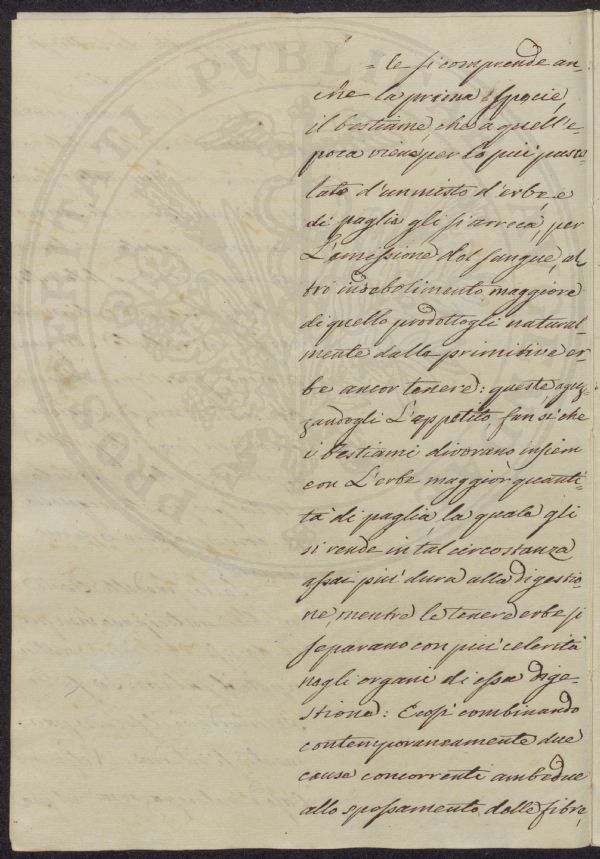 = le si comprende an-
che la prima Specie,
il bestiame, che a quell'e-
poca viene per lo più pasco-
lato d'un misto d'erbe, e
di paglia gli si arreca, per
L'emissione del sangue, al-
tro indebolimento maggiore
di quello prodottogli natural-
mente dalle primitive er-
be ancor tenere: queste, aguz-
zandogli L'appetito, fan sì che
i bestiami divorano insiem
con L'erbe maggior quanti-
tà di paglia, la quale gli
si rende in tal circostanza
assai più dura alla digestio-
ne, mentre le tenere erbe si
separano con più celerità
negli organi di essa dige-
stione: E così combinando
contemporaneamente due
cause concorrenti ambedue
allo spossamento delle fibre,
PROSPERITATI PVBLI